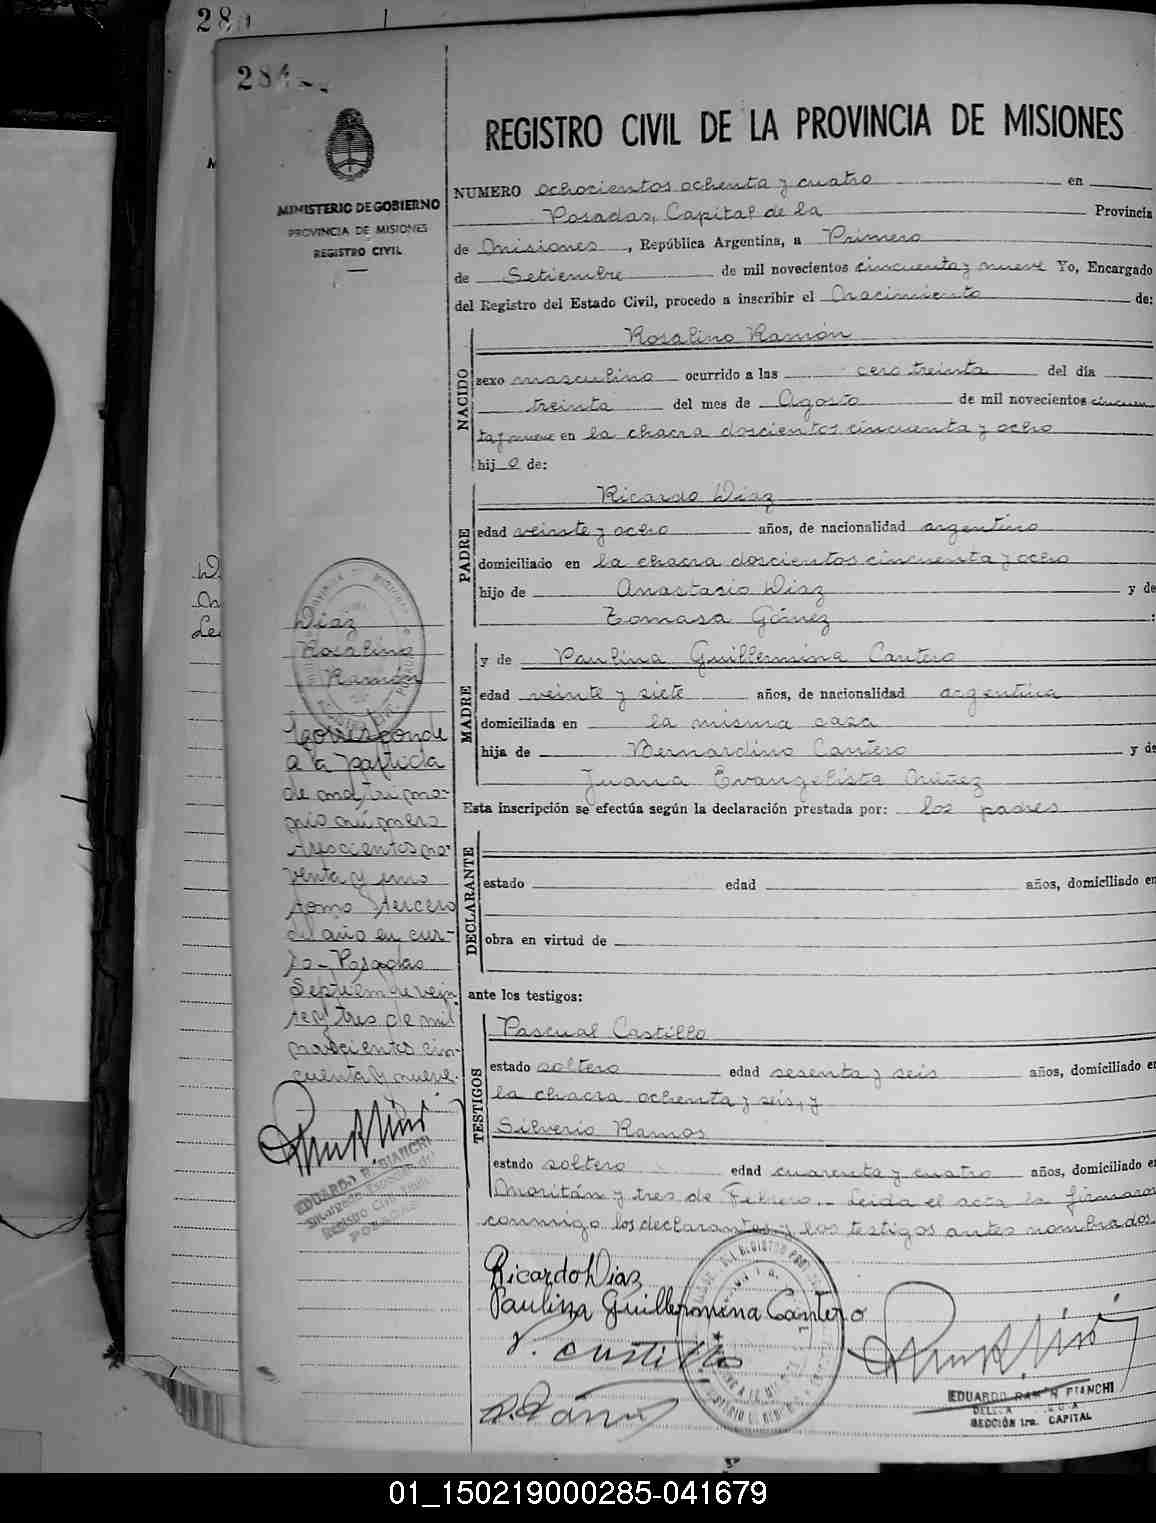 28
284
MINISTERIO DE GOBIERNO
PROVINCIA DE MISIONES
REGISTRO CIVIL
REGISTRO CIVIL DE LA PROVINCIA DE MISIONES
NUMERO ochocientos ochenta y cuatro en
Posadas, Capital de la Provincia
de Misiones, República Argentina, a Primero
de Setiembre de mil novecientos cincuenta y nueve Yo, Encargado
del Registro del Estado Civil, procedo a inscribir el Nacimiento de:
NACIDO
Rosalino Ramón
sexo masculino ocurrido a las cero treinta del día
treinta del mes de Agosto de mil novecientos cincuen
ta y nueve en la chacra doscientos cincuenta y ocho
hijo de:
PADRE
Ricardo Diaz
edad veinte y ocho años, de nacionalidad argentino
domiciliado en la chacra doscientos cincuenta y ocho
hijo de Anastasio Diaz y de
Tomasa Gómez :
MADRE
y de Paulina Guillermina Cantero
edad veinte y siete años, de nacionalidad argentina
domiciliada en la misma casa
hija de Bernardino Cantero y de
Juana Evangelista Núñez
Esta inscripción se efectúa según la declaración prestada por: los padres
DECLARANTE
estado edad años, domiciliado en
obra en virtud de
ante los testigos:
TESTIGOS
Pascual Castillo
estado soltero edad sesenta y seis años, domiciliado en
la chacra ochenta y seis, y
Silverio Ramos
estado soltero edad cuarenta y cuatro años, domiciliado en
Moritán y tres de Febrero.- Leida el acta la firmaron
conmigo los declarantes y los testigos antes nombrados.
Ricardo Diaz
Paulina Guillermina Cantero
P. Castillo
EDUARDO RAMÓN BIANCHI
SECCIÓN 1ra. CAPITAL
Diaz
Rosalino
Ramón
Corresponde
a la partida
de matrimo-
nio número
trescientos no-
venta y uno
tomo tercero
del año en cur-
so - Posadas
Septiembre vein
te y tres de mil
novecientos cin-
cuenta y nueve.
EDUARDO R. BIANCHI
Registro Civil
POSADAS
01_150219000285-041679